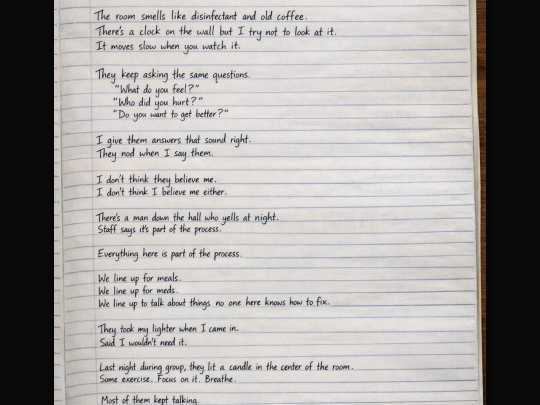 The room smells like disinfectant and old coffee.
There's a clock on the wall but I try not to look at it.
It moves slow when you watch it.
They keep asking the same questions.
"What do you feel?"
"Who did you hurt?"
"Do you want to get better?"
I give them answers that sound right.
They nod when I say them.
I don't think they believe me.
I don't think I believe me either.
There's a man down the hall who yells at night.
Staff says it's part of the process.
Everything here is part of the process.
We line up for meals.
We line up for meds.
We line up to talk about things no one here knows how to fix.
They took my lighter when I came in.
Said I wouldn't need it.
Last night during group, they lit a candle in the center of the room.
Some exercise. Focus on it. Breathe.
Most of them kept talking.